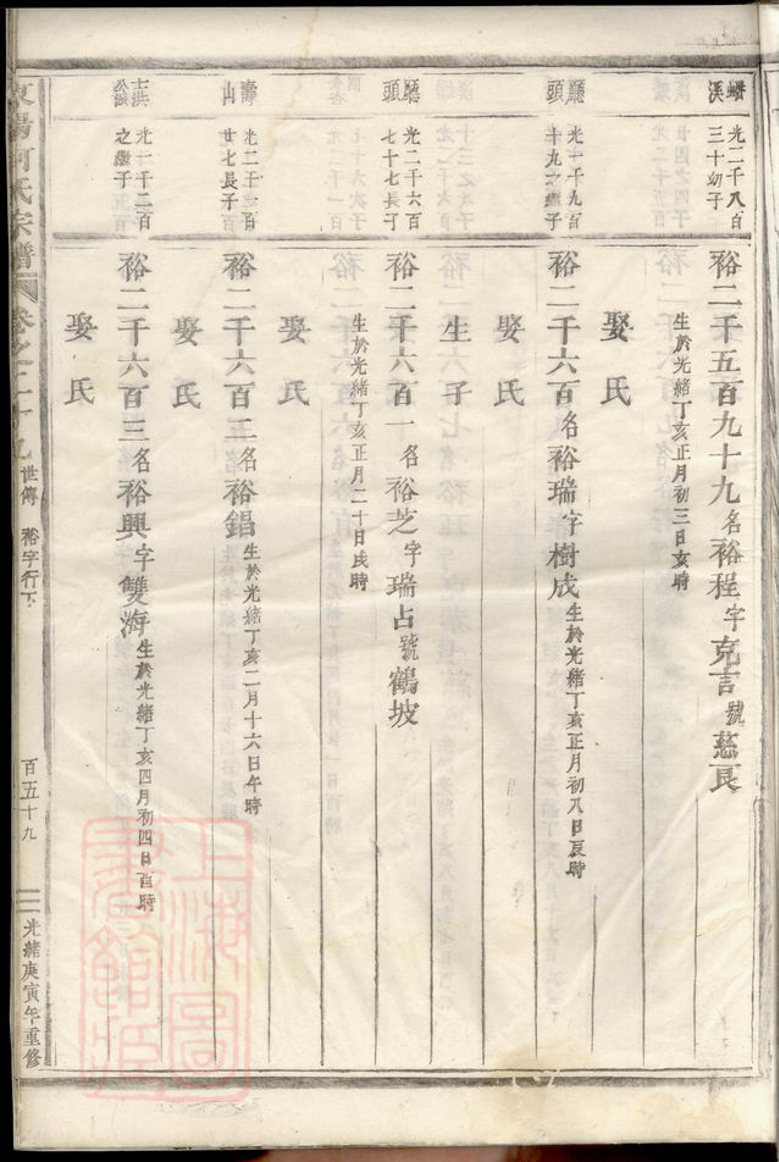 蟠溪
光二千八百三十幼子
裕二千五百九十九名裕程字克言號慈良
生於光緒丁亥正月初三日亥時
娶氏
廳頭
光一千九百十九之繼子
裕二千六百名裕瑞字樹成生於光緒丁亥正月初八日辰時
娶氏
生子
廳頭
光二千六百七十七長子
裕二千六百一名裕芝字瑞占號鶴坡
生於光緒丁亥正月二十日戌時
娶氏
壽山
光二千一百廿七長子
裕二千六百二名裕錩生於光緒丁亥二月十六日午時
娶氏
光一千二百之繼子
裕二千六百三名裕興字雙海生於光緒丁亥四月初四日酉時
娶氏
東陽何氏宗譜 卷之二十九 世傳 裕字行下 百五十九 光緒庚寅年重修
上海圖書館